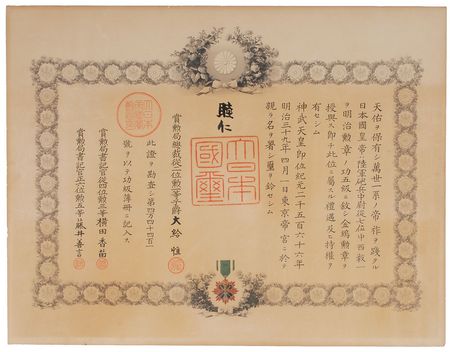 天佑ヲ保有シ萬世一系ノ帝祚ヲ踐タル
日本國皇帝ハ陸軍砲兵中尉從七位中西毅一
ヲ明治勲章ノ功五級ニ敍シ金鵄勲章ヲ
授與ス即チ此位ニ屬スル禮遇及ヒ特權ヲ
有セシム
神武天皇即位紀元二千五百六十六年
明治三十九年四月一日東京帝宮ニ於テ
親ラ名ヲ署シ璽ヲ鈐セシム
睦仁
大日本國璽
賞勲局總裁從二位勲一等子爵大給恒
此證ヲ勘査シ第四万四千四百一
號ヲ以テ功級簿冊ニ記入ス
賞勲局書記官從四位勲三等横田香苗
賞勲局書記官正六位勲五等藤井善言